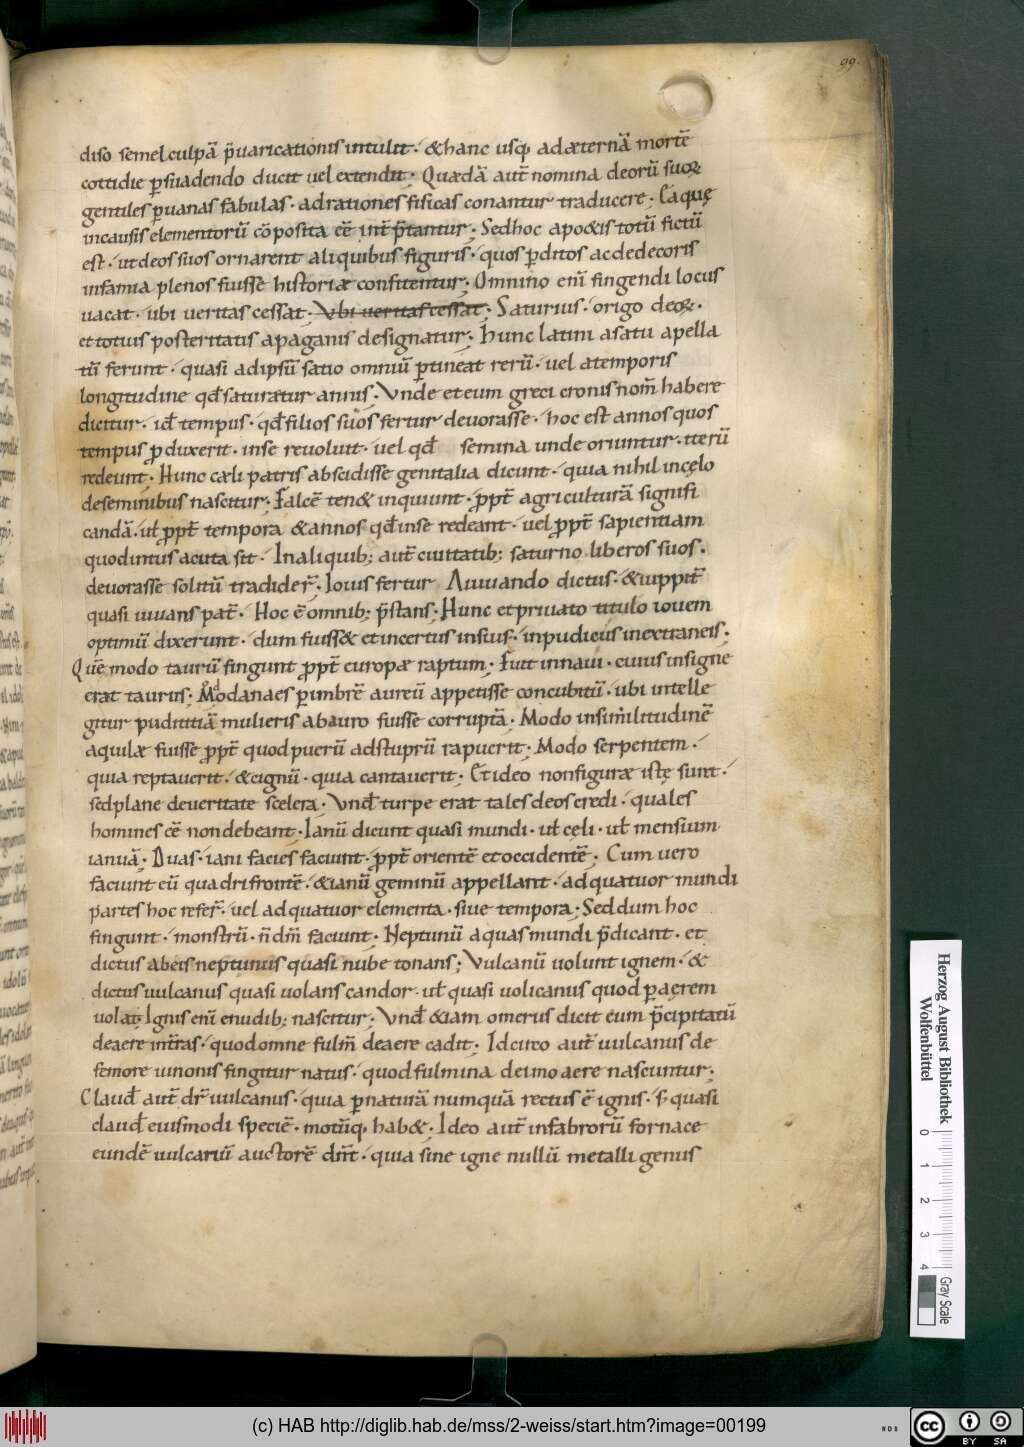 99.
diso semel culpā p̄uaricationis intulit · &hanc usq; ad æternā mortē
cottidie p̱suadendo ducit uel extendit; Quædā aut̄ nomina deorū suoꝝ
gentiles p̱ uanas fabulas · ad rationes fisicas conantur traducere; Eaquę
incausis elementorū cōposita eē int̄p̄tantur; Sed hoc apo&is totū fictū
est · ut deos suos ornarent aliquibus figuris · quos p̱ditos ac dedecoris
infamia plenos fuisse historiæ confitentur; Omnino eni fingendi locus
uacat · ubi ueritas cessat; Vbi ueritas cessat; Saturnus · origo deoꝝ ·
et totius posteritatis a paganis designatur; Hunc latini a satu apella
tū ferunt · quasi adipsū satio omniū p̱tineat rerū · uel a temporis
longitudine qd̄ saturætur annis; Vnde et eum greci cronis nom̄ habere
dicitur · id̄ tempus · qd̄ filios suos fertur deuorasse · hoc est annos quos
tempus p̱duxerit · in se reuoluit · uel qd̄ semina unde oriuntur · iterū
redeunt; Hunc cæli patris abscidisse genitalia dicunt · quia nihil in cęlo
de seminibus nascitur; Falcē ten& inquiunt · ꝓpt̄ agriculturā signifi
candā · ut̄ ꝓpt̄ tempora &annos qd̄ inse redeant · uel ꝓpt̄ sapientiam
quod intus acuta sit · In aliquib; aut̄ ciuitatib; saturno liberos suos ·
deuorasse solitū tradider̄ · Iouis fertur A iuuando dictus · &iuppit̄
quasi iuuans pat̄ · Hoc ē omnib; p̄stans; Hunc et priuato titulo iouem
optimū dixerunt · dum fuiss& et incertus in suis · inpudicus in extraneis ·
Quē modo taurū fingunt ꝓpt̄ europæ raptum · Fuit in naui · cuius insigne
erat taurus; M̊o danaes p̱ imbrē aureū appetisse concubitū · ubi intelle
gitur pudititiā mulieris ab auro fuisse corruptā · Modo in similitudinē
aquilæ fuisse ꝓpt̄ quod puerū ad stuprū rapuerit · Modo serpentem ·
quia reptauerit · &cignū · quia cantauerit · Et ideo non figuræ istę sunt ·
sed plane de ueritate scelera · Vnd̄ turpe erat tales deos credi · quales
homines eē non debeant · Ianū dicunt quasi mundi · ut̄ cęli · ut̄ mensium
ianuā · Duas · iani facies faciunt · ꝓpt̄ orientē et occidentē · Cum uero
faciunt eū quadrifrontē · &ianū geminū appellant · ad quatuor mundi
partes hoc refer̄ · uel ad quatuor elementa · siue tempora; Sed dum hoc
fingunt · monstrū · ñ dm̄ faciunt · Neptunū aquas mundi p̄dicant · et
dictus ab eis neptunus quasi nube tonans; Vulcanū uolunt ignem · &
dictus uulcanus quasi uolans candor · ut̄ quasi uolicanus quod p̱ aęrem
uolat; Ignis eni e nudib; nascitur · Vnd̄ &iam omerus dicit eum p̄cipitatū
de aere in terras · quod omne fulm̄ de aere cadit; Idcirco aut̄ uulcanus de
femore iunonis fingitur natus · quod fulmina de imo aere nascuntur;
Claud̄ aut̄ dr̄ uulcanus · quia p̱ naturā numquā rectus ē ignis · s · quasi
claud̄ eiusmodi speciē · motūq; hab& · Ideo aut̄ in fabrorū fornace
eundē uulcanū auctorē dm̄t · quia sine igne nullū metalli genus
Herzog August Bibliothek
Wolfenbüttel
0 1 2 3 4
Gray Scale
(c) HAB http://diglib.hab.de/mss/2-weiss/start.htm?image=00199
cc BY SA